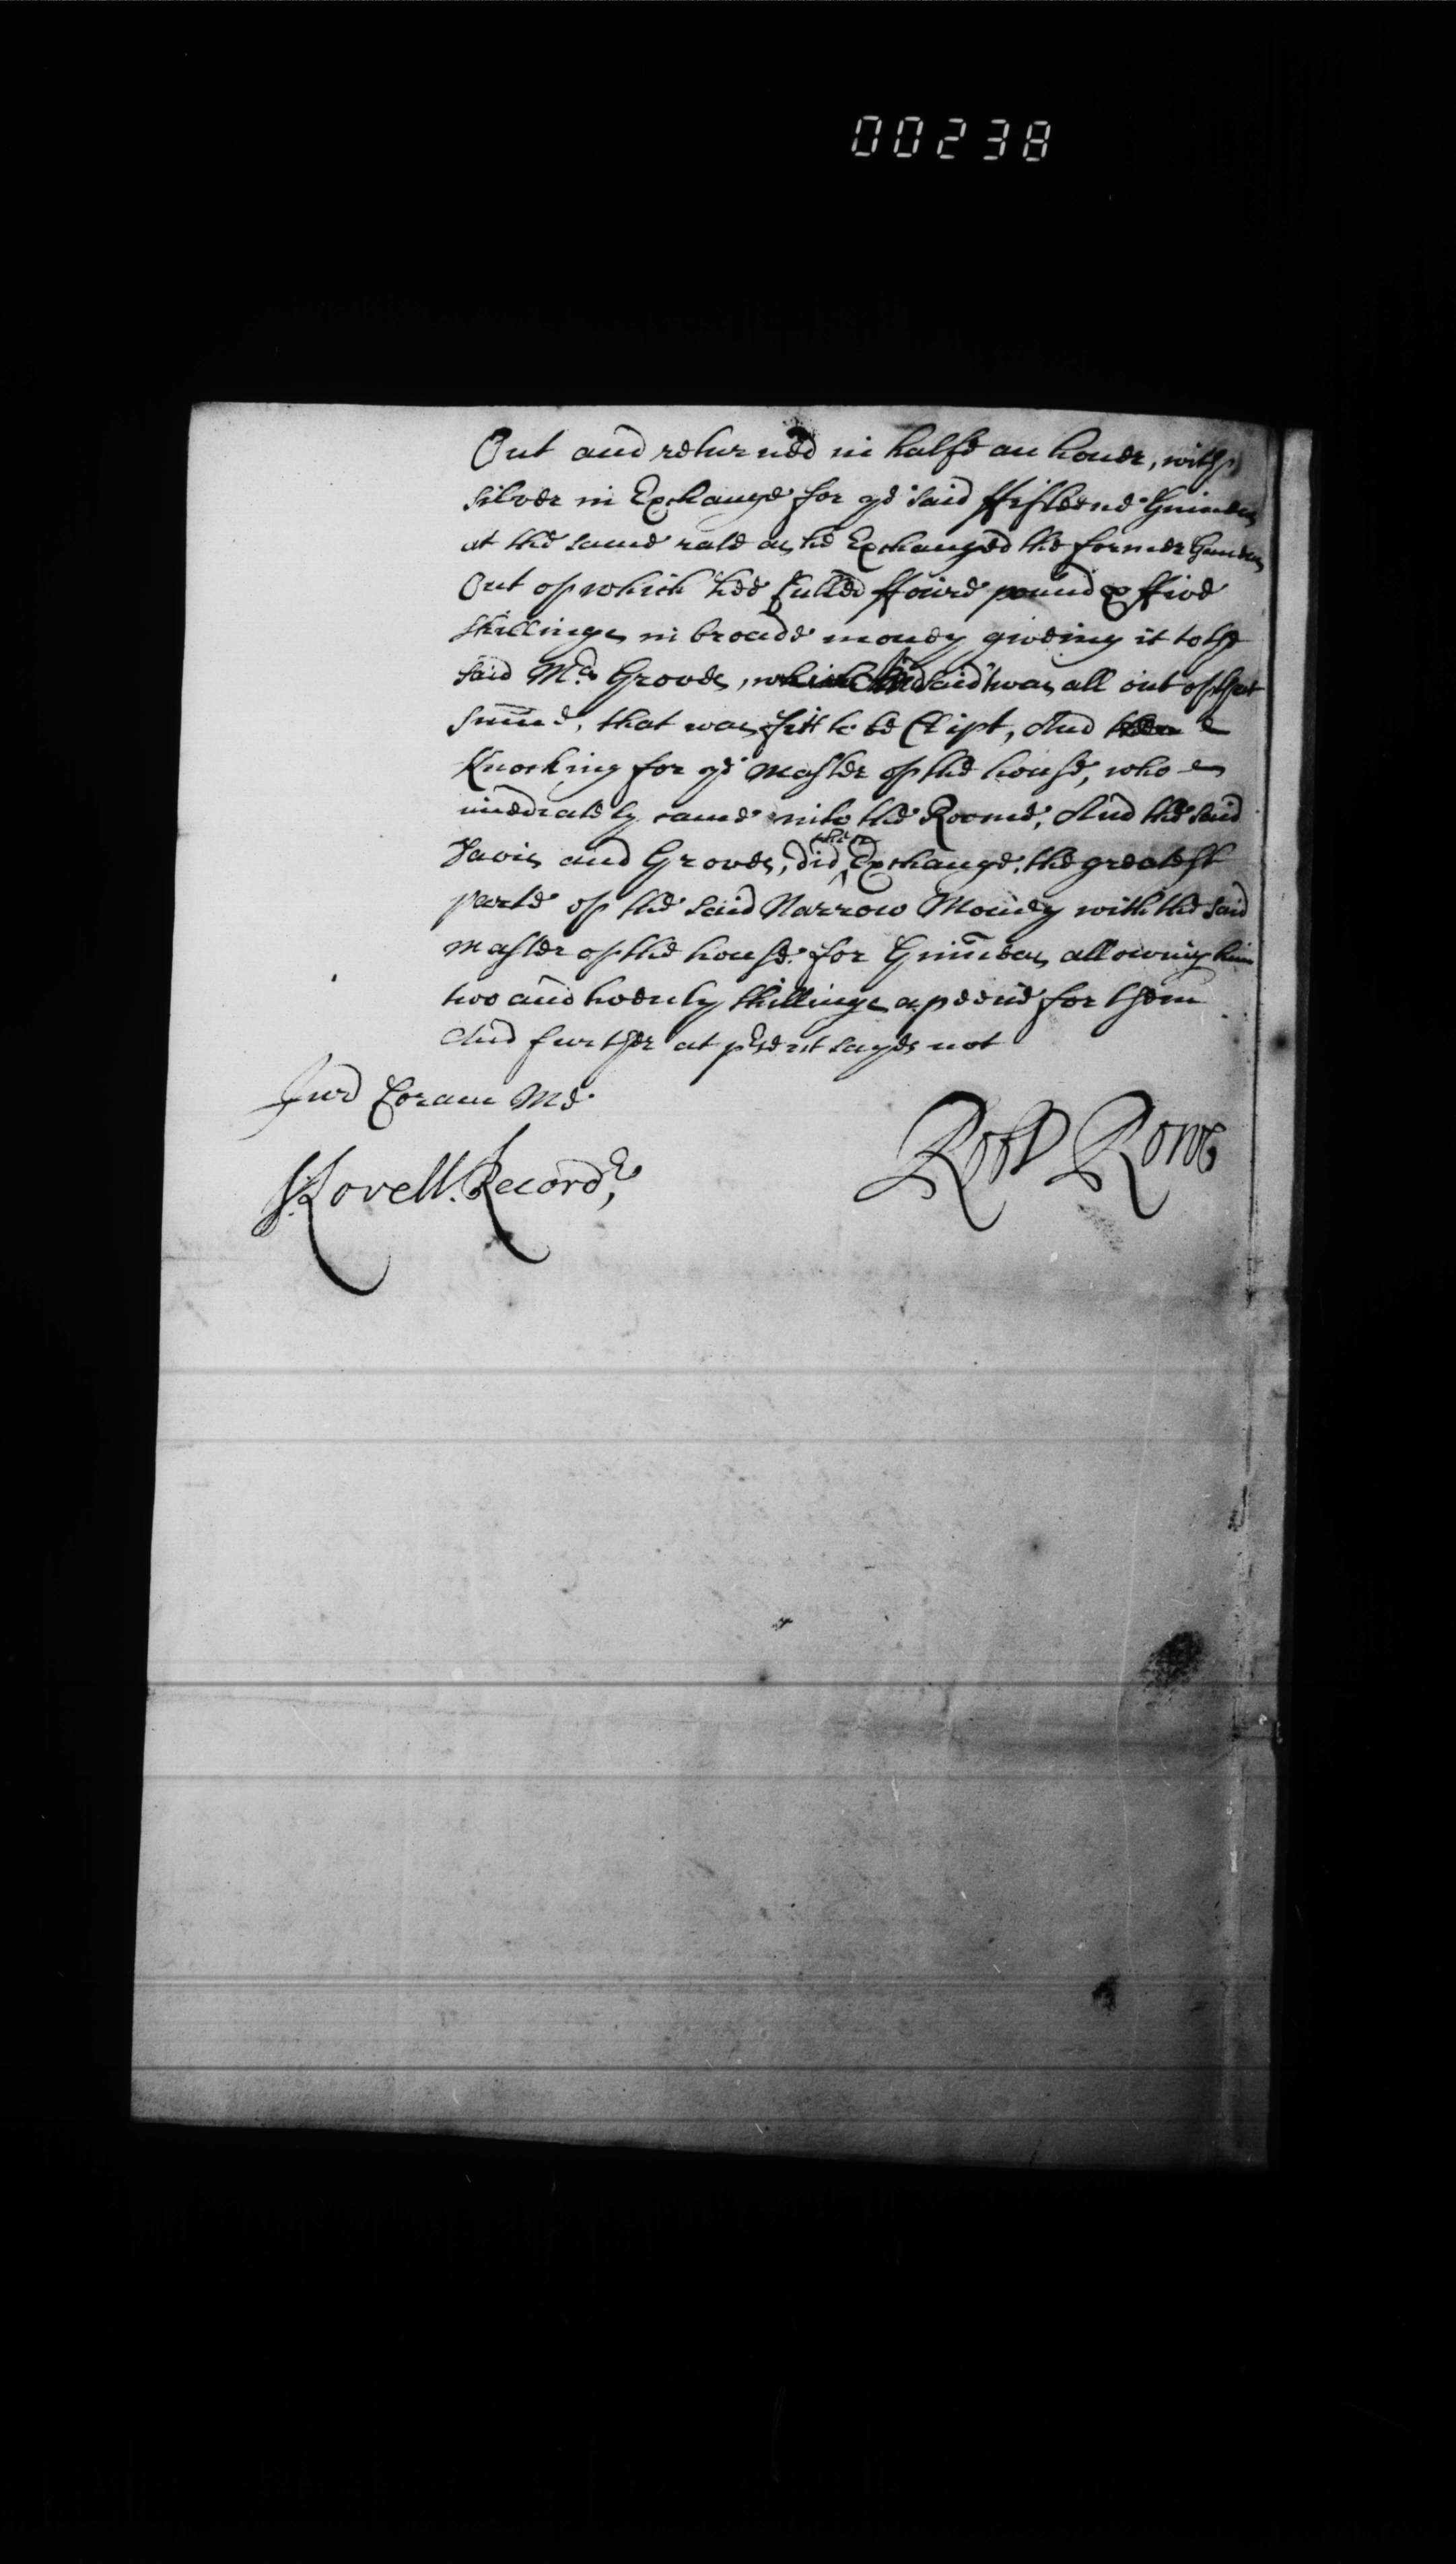 00238
Out and returned in halfe an houer, with
silver in Exchange for ye said ffifteene Guineas
at the same rate as he Exchanged the former Guineas
Out of which hee Culled ffoure pound & ffive
shillings in broade money giveing it to the
said Mrs Groves, which said twas all out of that
sume, that was fitt to be Clipt, And
Knocking for ye Master of the house, who
imediately came into the Roome, And the said
Davis and Groves, did then Exchange, the greatest
parte of the said Narrow Money with the said
master of the house for Guineas allowing him
two and twenty shillings apeece for them
And further at prsent sayes not
Jurd Coram Me
S: Lovell. Recordr,
Robt Rowe